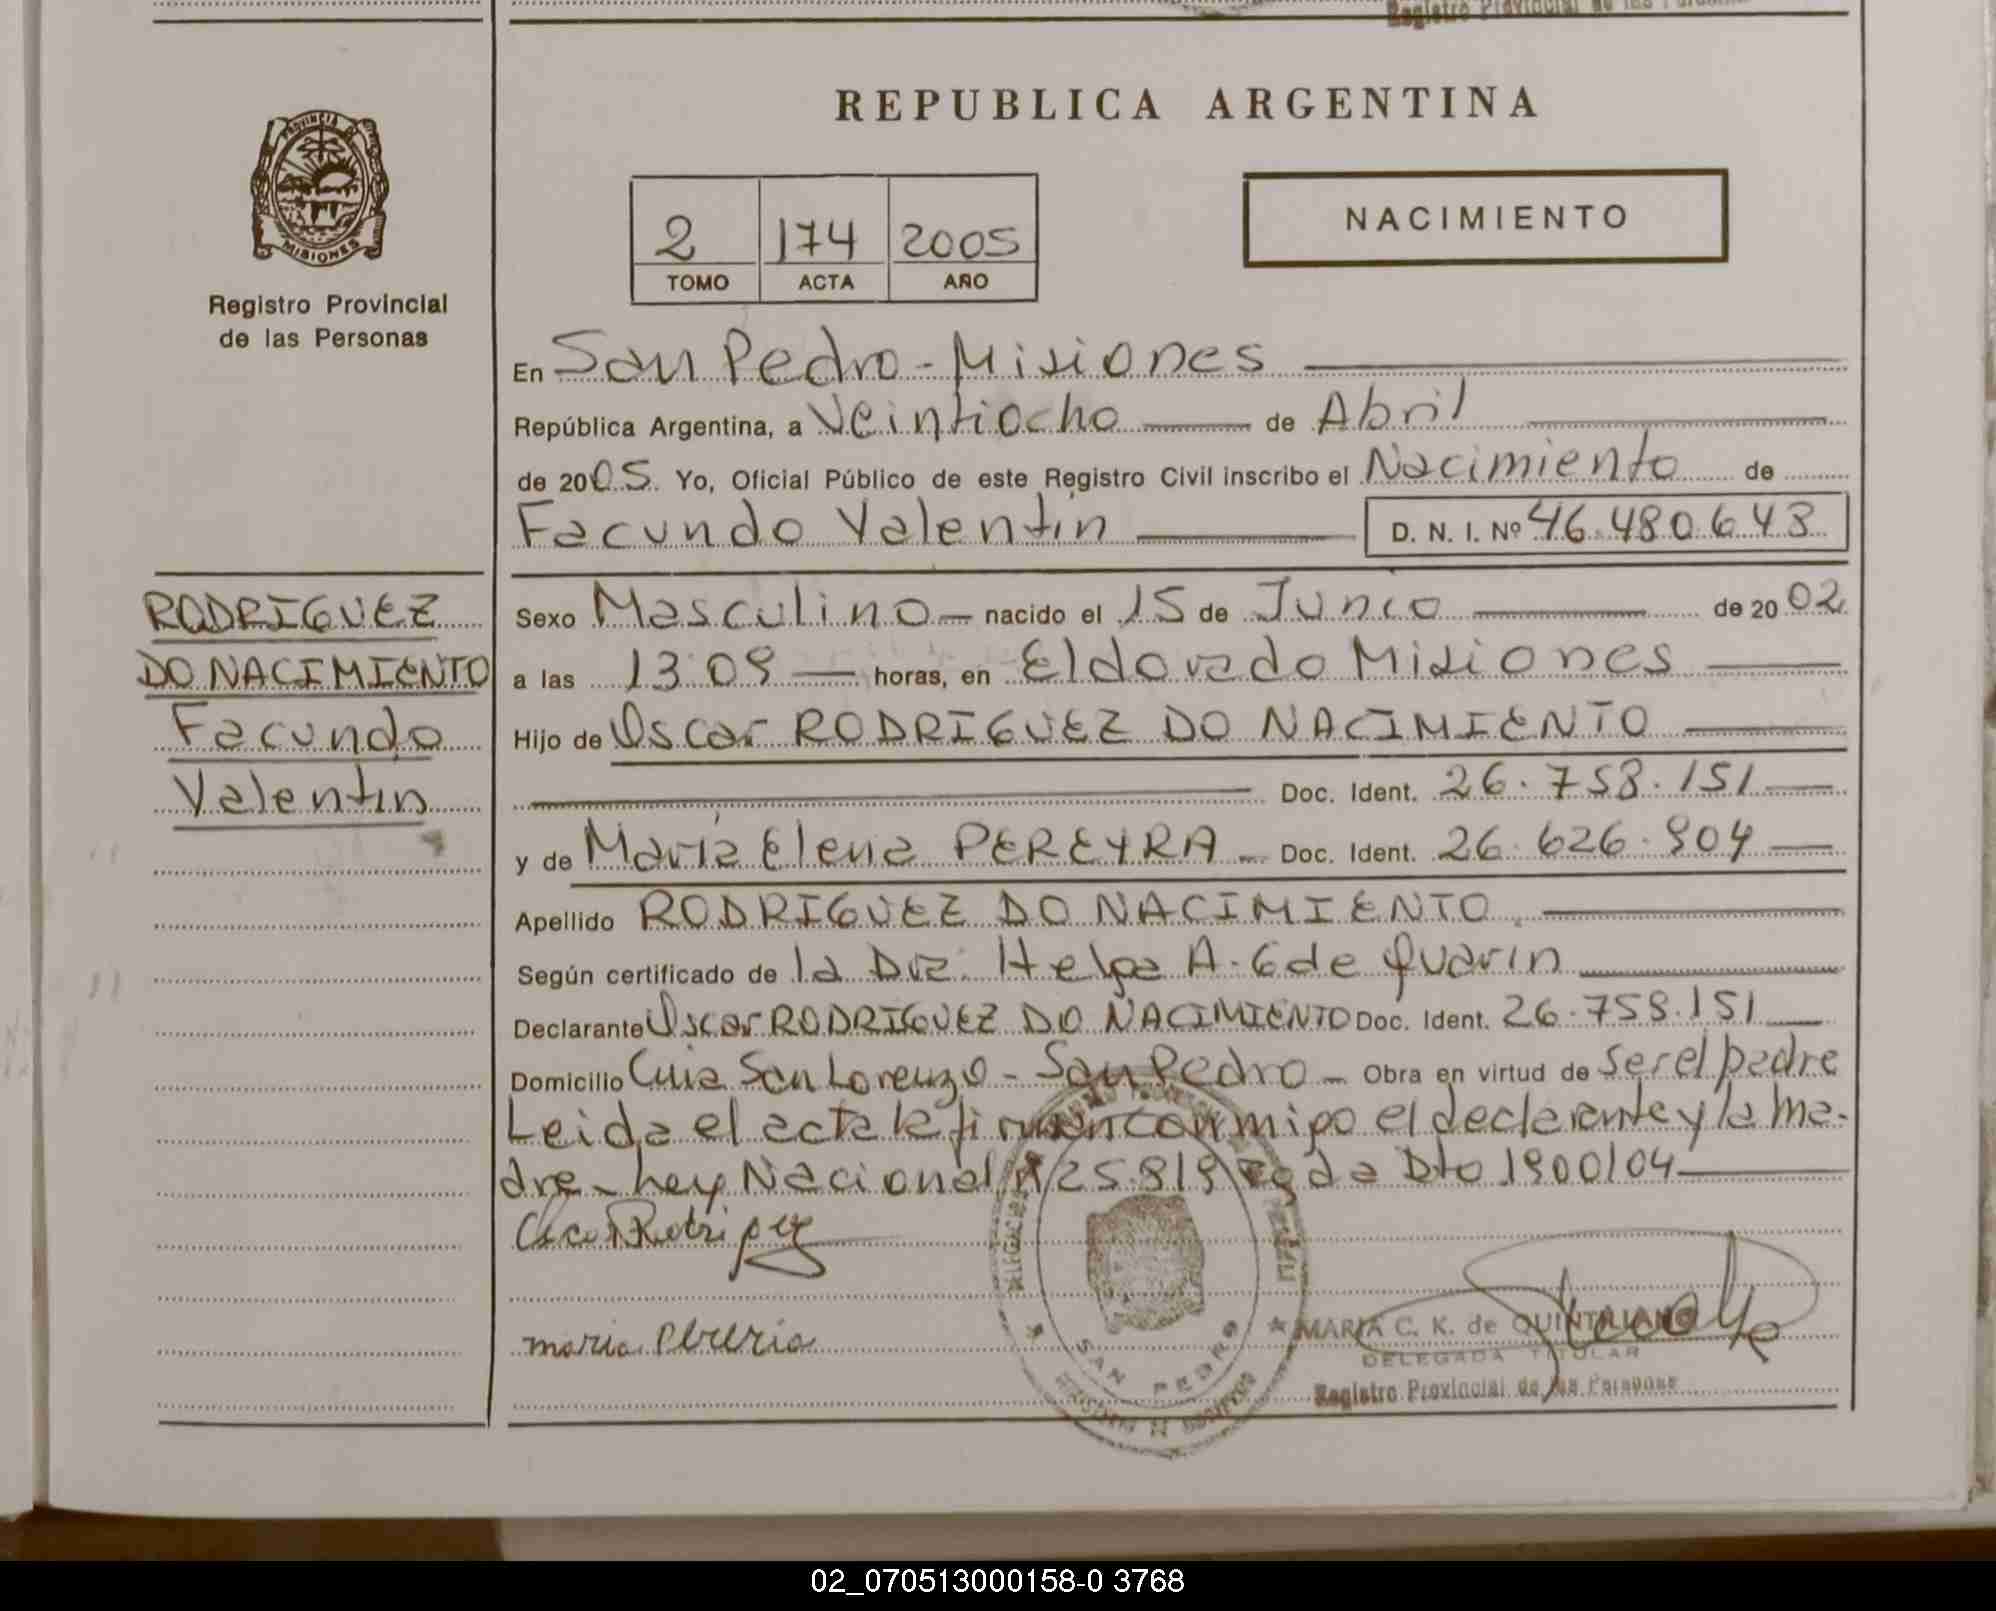 REPUBLICA ARGENTINA
PROVINCIA DE
MISIONES
Registro Provincial
de las Personas
2 174 2005
TOMO ACTA AÑO
NACIMIENTO
En San Pedro - Misiones
República Argentina, a Veintiocho de Abril
de 2005. Yo, Oficial Público de este Registro Civil inscribo el Nacimiento de
Facundo Valentin D. N. I. Nº 46.480.643
RODRIGUEZ
DO NACIMIENTO
Facundo
Valentin
Sexo Masculino - nacido el 15 de Junio de 2002
a las 13:09 horas, en Eldorado Misiones
Hijo de Oscar RODRIGUEZ DO NACIMIENTO
Doc. Ident. 26.758.151
y de Maria Elena PEREYRA - Doc. Ident. 26.626.904
Apellido RODRIGUEZ DO NACIMIENTO
Según certificado de la Dra. Helga A. G de Quarin
Declarante Oscar RODRIGUEZ DO NACIMIENTO Doc. Ident. 26.758.151
Domicilio Cuia San Lorenzo - San Pedro - Obra en virtud de ser el padre
Leida el acta la firman conmigo el declarante y la ma-
dre - Ley Nacional Nº 25.819 Dto 1900/04
maria Pereria
SAN PEDRO
MARIA C. K. de QUINTRIANO
DELEGADA TITULAR
Registro Provincial de las Personas
02_070513000158-0 3768